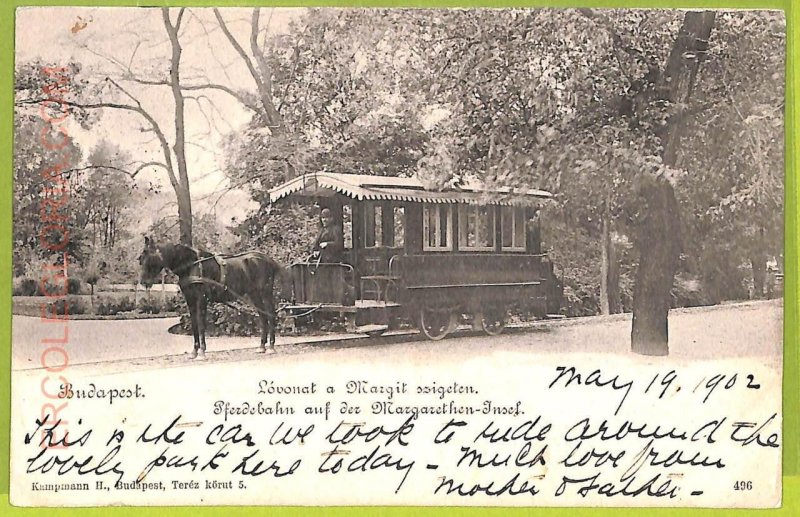 Budapest.
Lóvonat a Margit szigeten.
Pferdebahn auf der Margarethen-Insel.
May 19. 1902
This is the car we took to ride around the
lovely park here today - Much love from
mother & father -
Kampmann H., Budapest, Teréz körut 5.
496
CIRCOLEGLORIA.COM